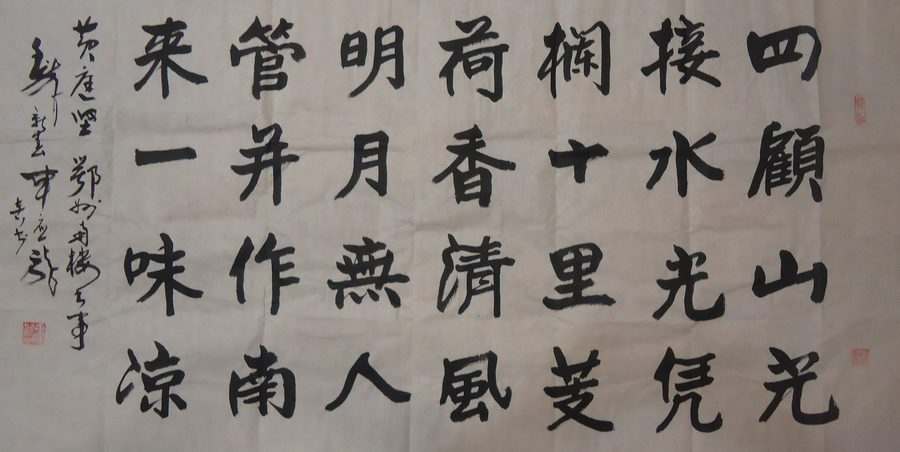 四顧山光
接水光凭
欄十里芰
荷香清風
明月無人
管并作南
来一味凉
黄庭坚 鄂州南楼书事
新春